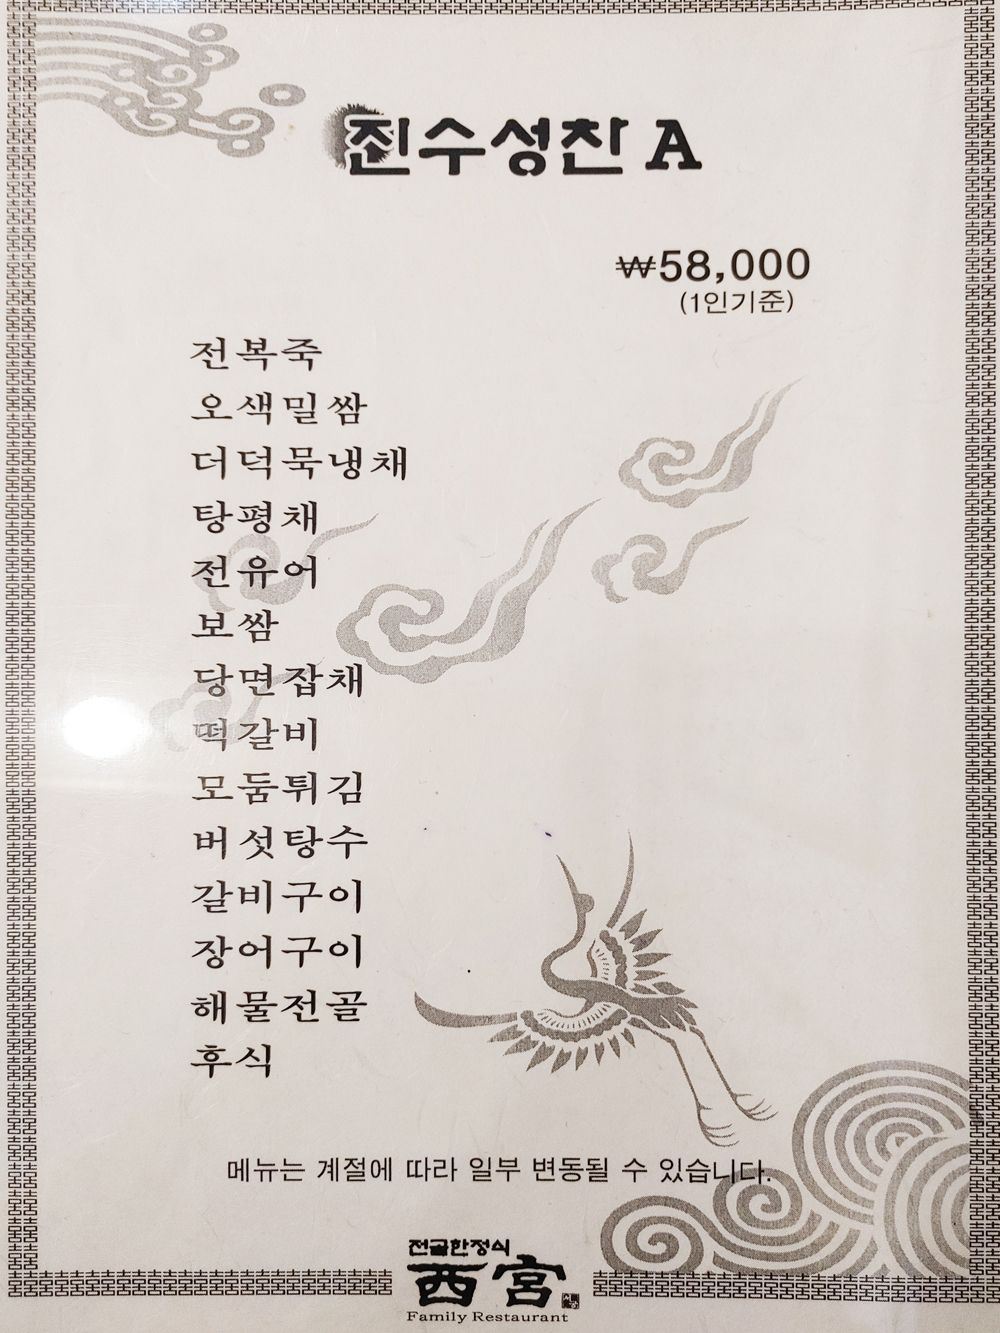 진수성찬 A
₩58,000
(1인기준)
전복죽
오색밀쌈
더덕묵냉채
탕평채
전유어
보쌈
당면잡채
떡갈비
모둠튀김
버섯탕수
갈비구이
장어구이
해물전골
후식
메뉴는 계절에 따라 일부 변동될 수 있습니다.
전골한정식
西宮
Family Restaurant